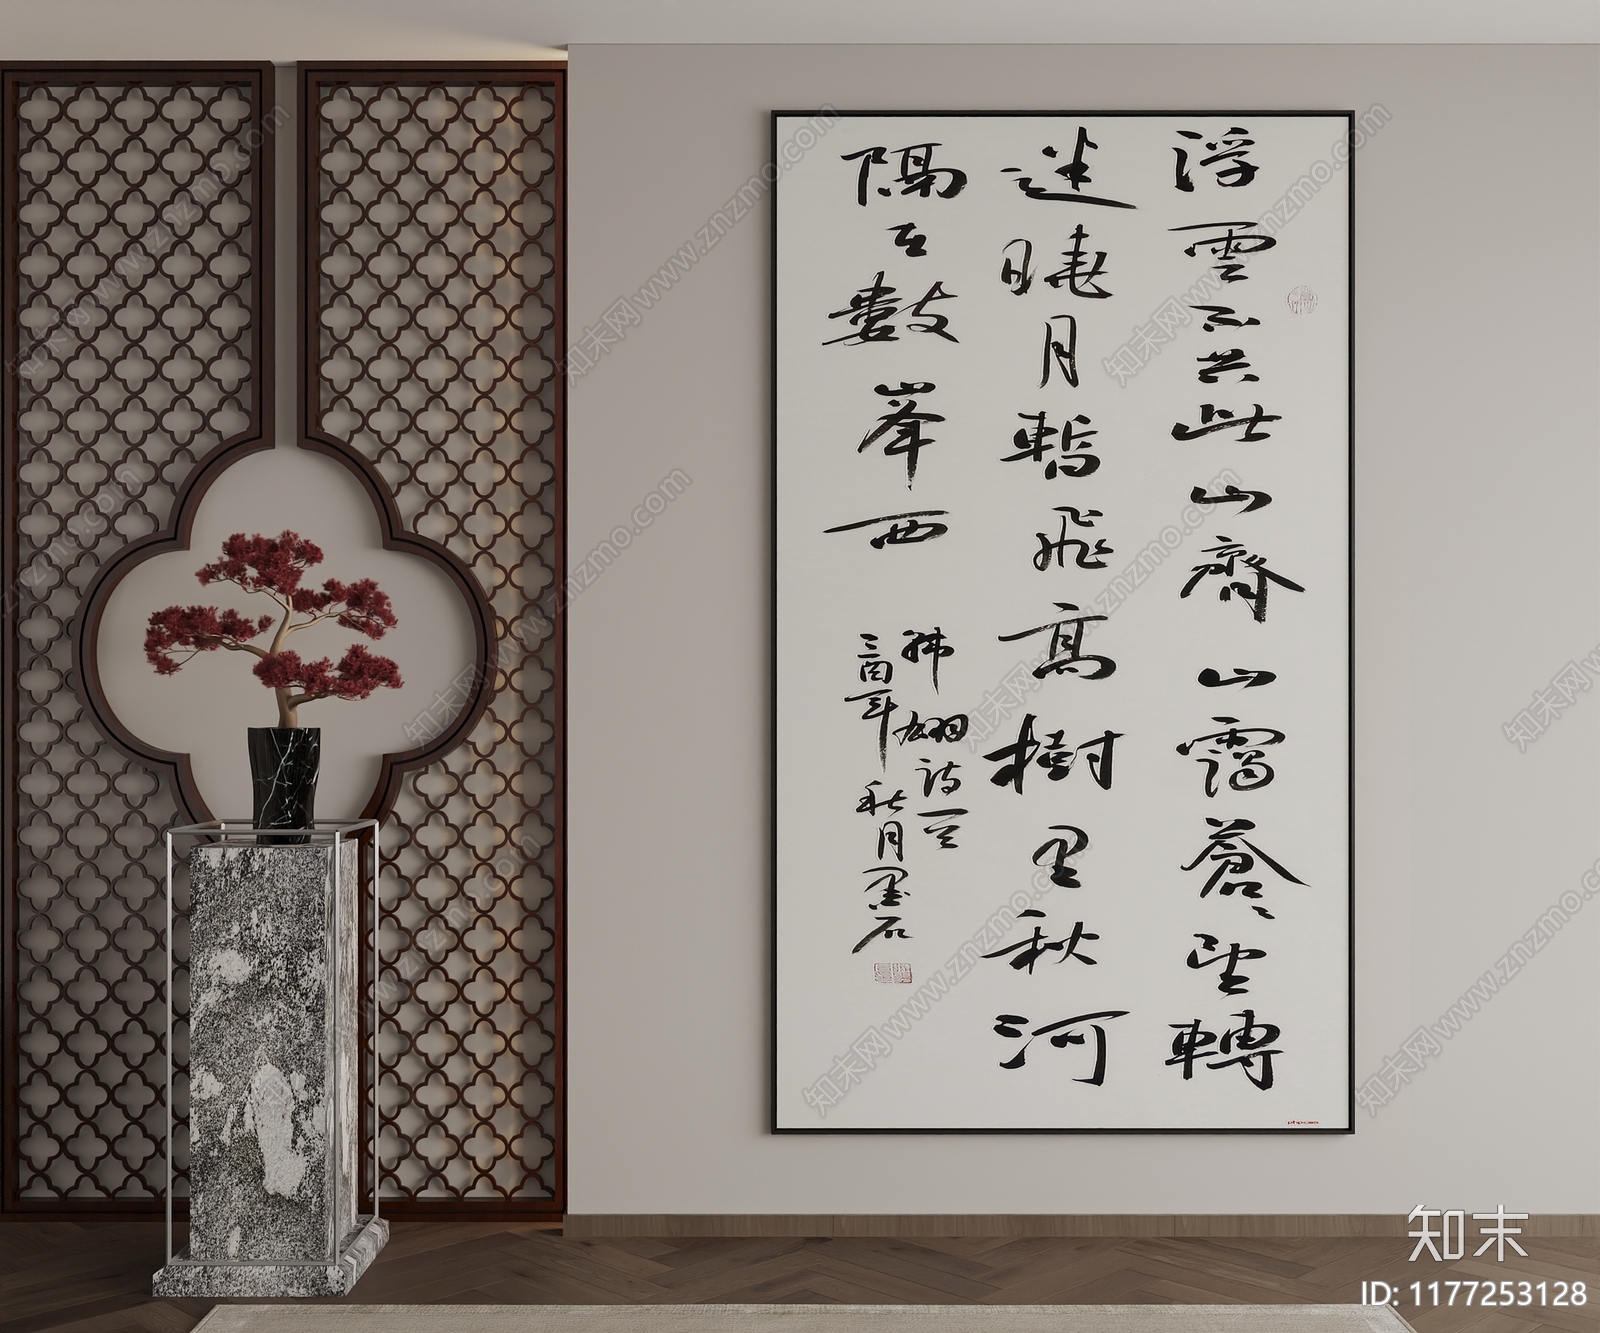 浮雲不共此山齊山靄蒼〻望轉
迷曉月暫飛高樹里秋河
隔在數峯西
韩翃诗一首
酉年秋月墨石
知末网www.znzmo.com
知末
ID: 1177253128